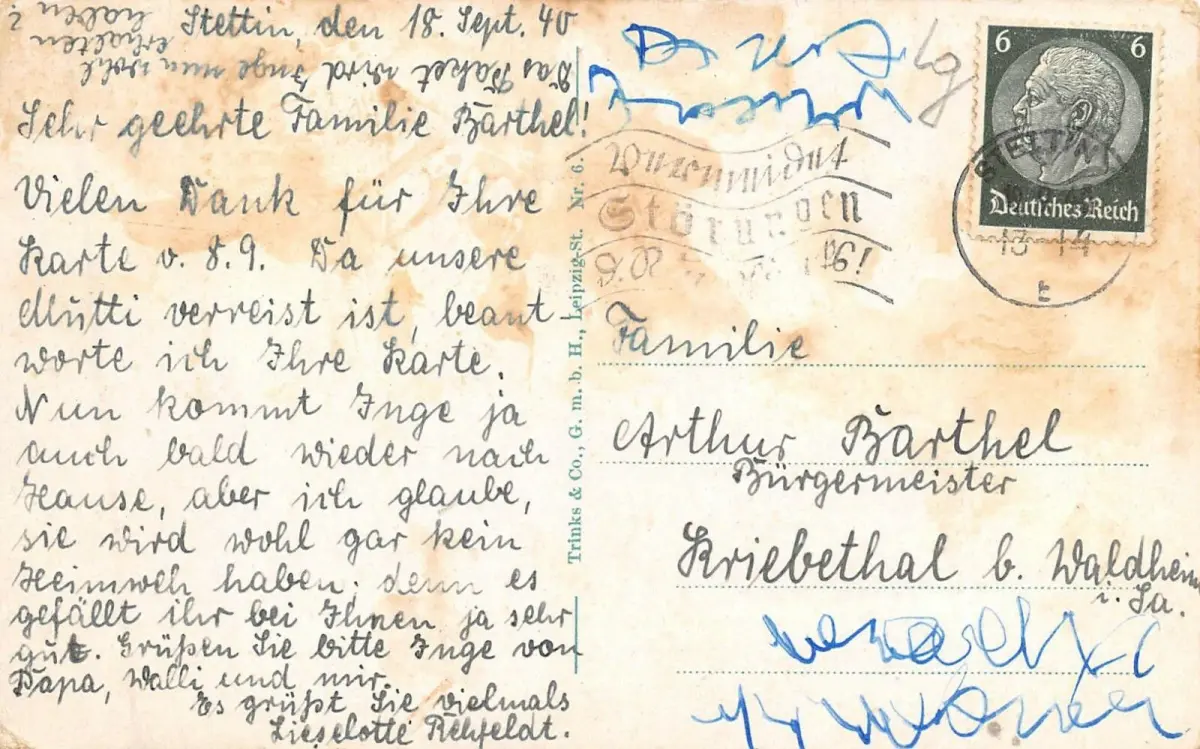 Stettin, den 18. Sept. 40
Das Paket wird Inge nun wohl
erhalten
haben?
Sehr geehrte Familie Barthel!
Vielen Dank für Ihre
Karte v. 8.9. Da unsere
Mutti verreist ist, beant-
worte ich Ihre Karte.
Nun kommt Inge ja
auch bald wieder nach
Hause, aber ich glaube,
sie wird wohl gar kein
Heimweh haben; denn es
gefällt ihr bei Ihnen ja sehr
gut. Grüßen Sie bitte Inge von
Papa, Walli und mir.
Es grüßt Sie vielmals
Lieselotte Rehfeldt.
Trinks & Co., G. m. b. H., Leipzig-St. Nr. 6.
6 6
Deutsches Reich
STETTIN
13-14
t
Störungen
Familie
Arthur Barthel
Bürgermeister
Kriebethal b. Waldheim
i. Sa.